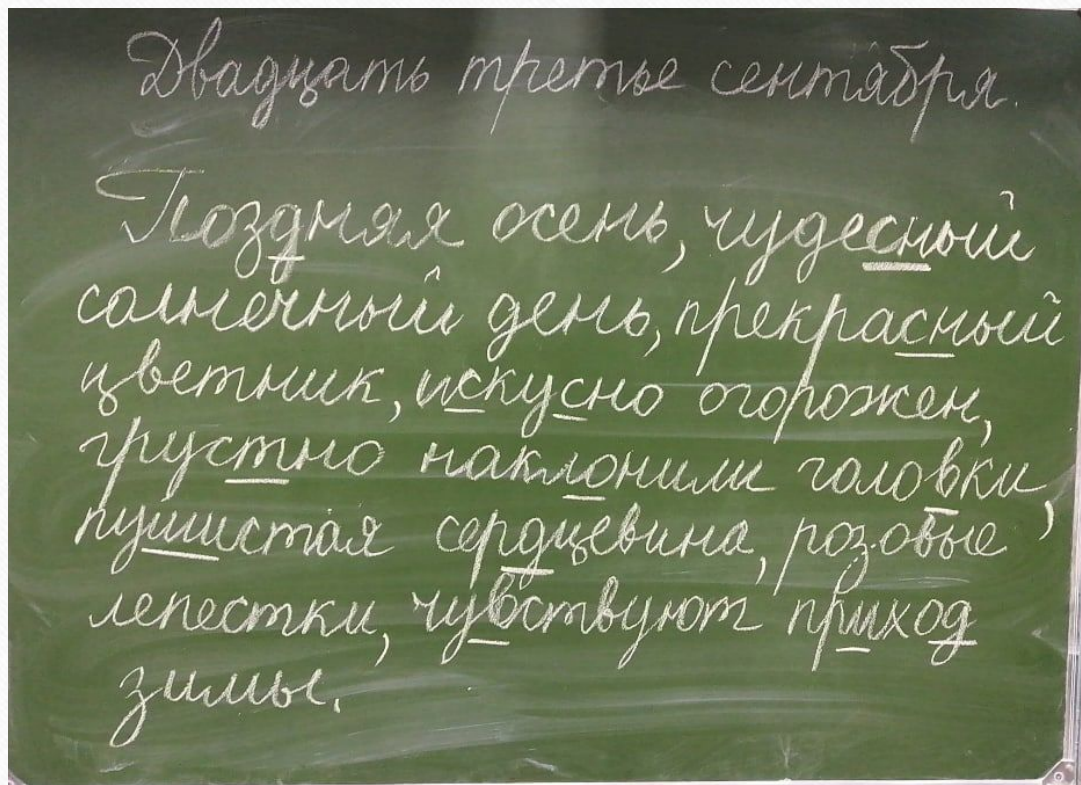 Двадцать третье сентября.
Поздняя осень, чудесный
солнечный день, прекрасный
цветник, искусно огорожен,
грустно наклонили головки,
пушистая сердцевина, розовые
лепестки, чувствуют приход
зимы.